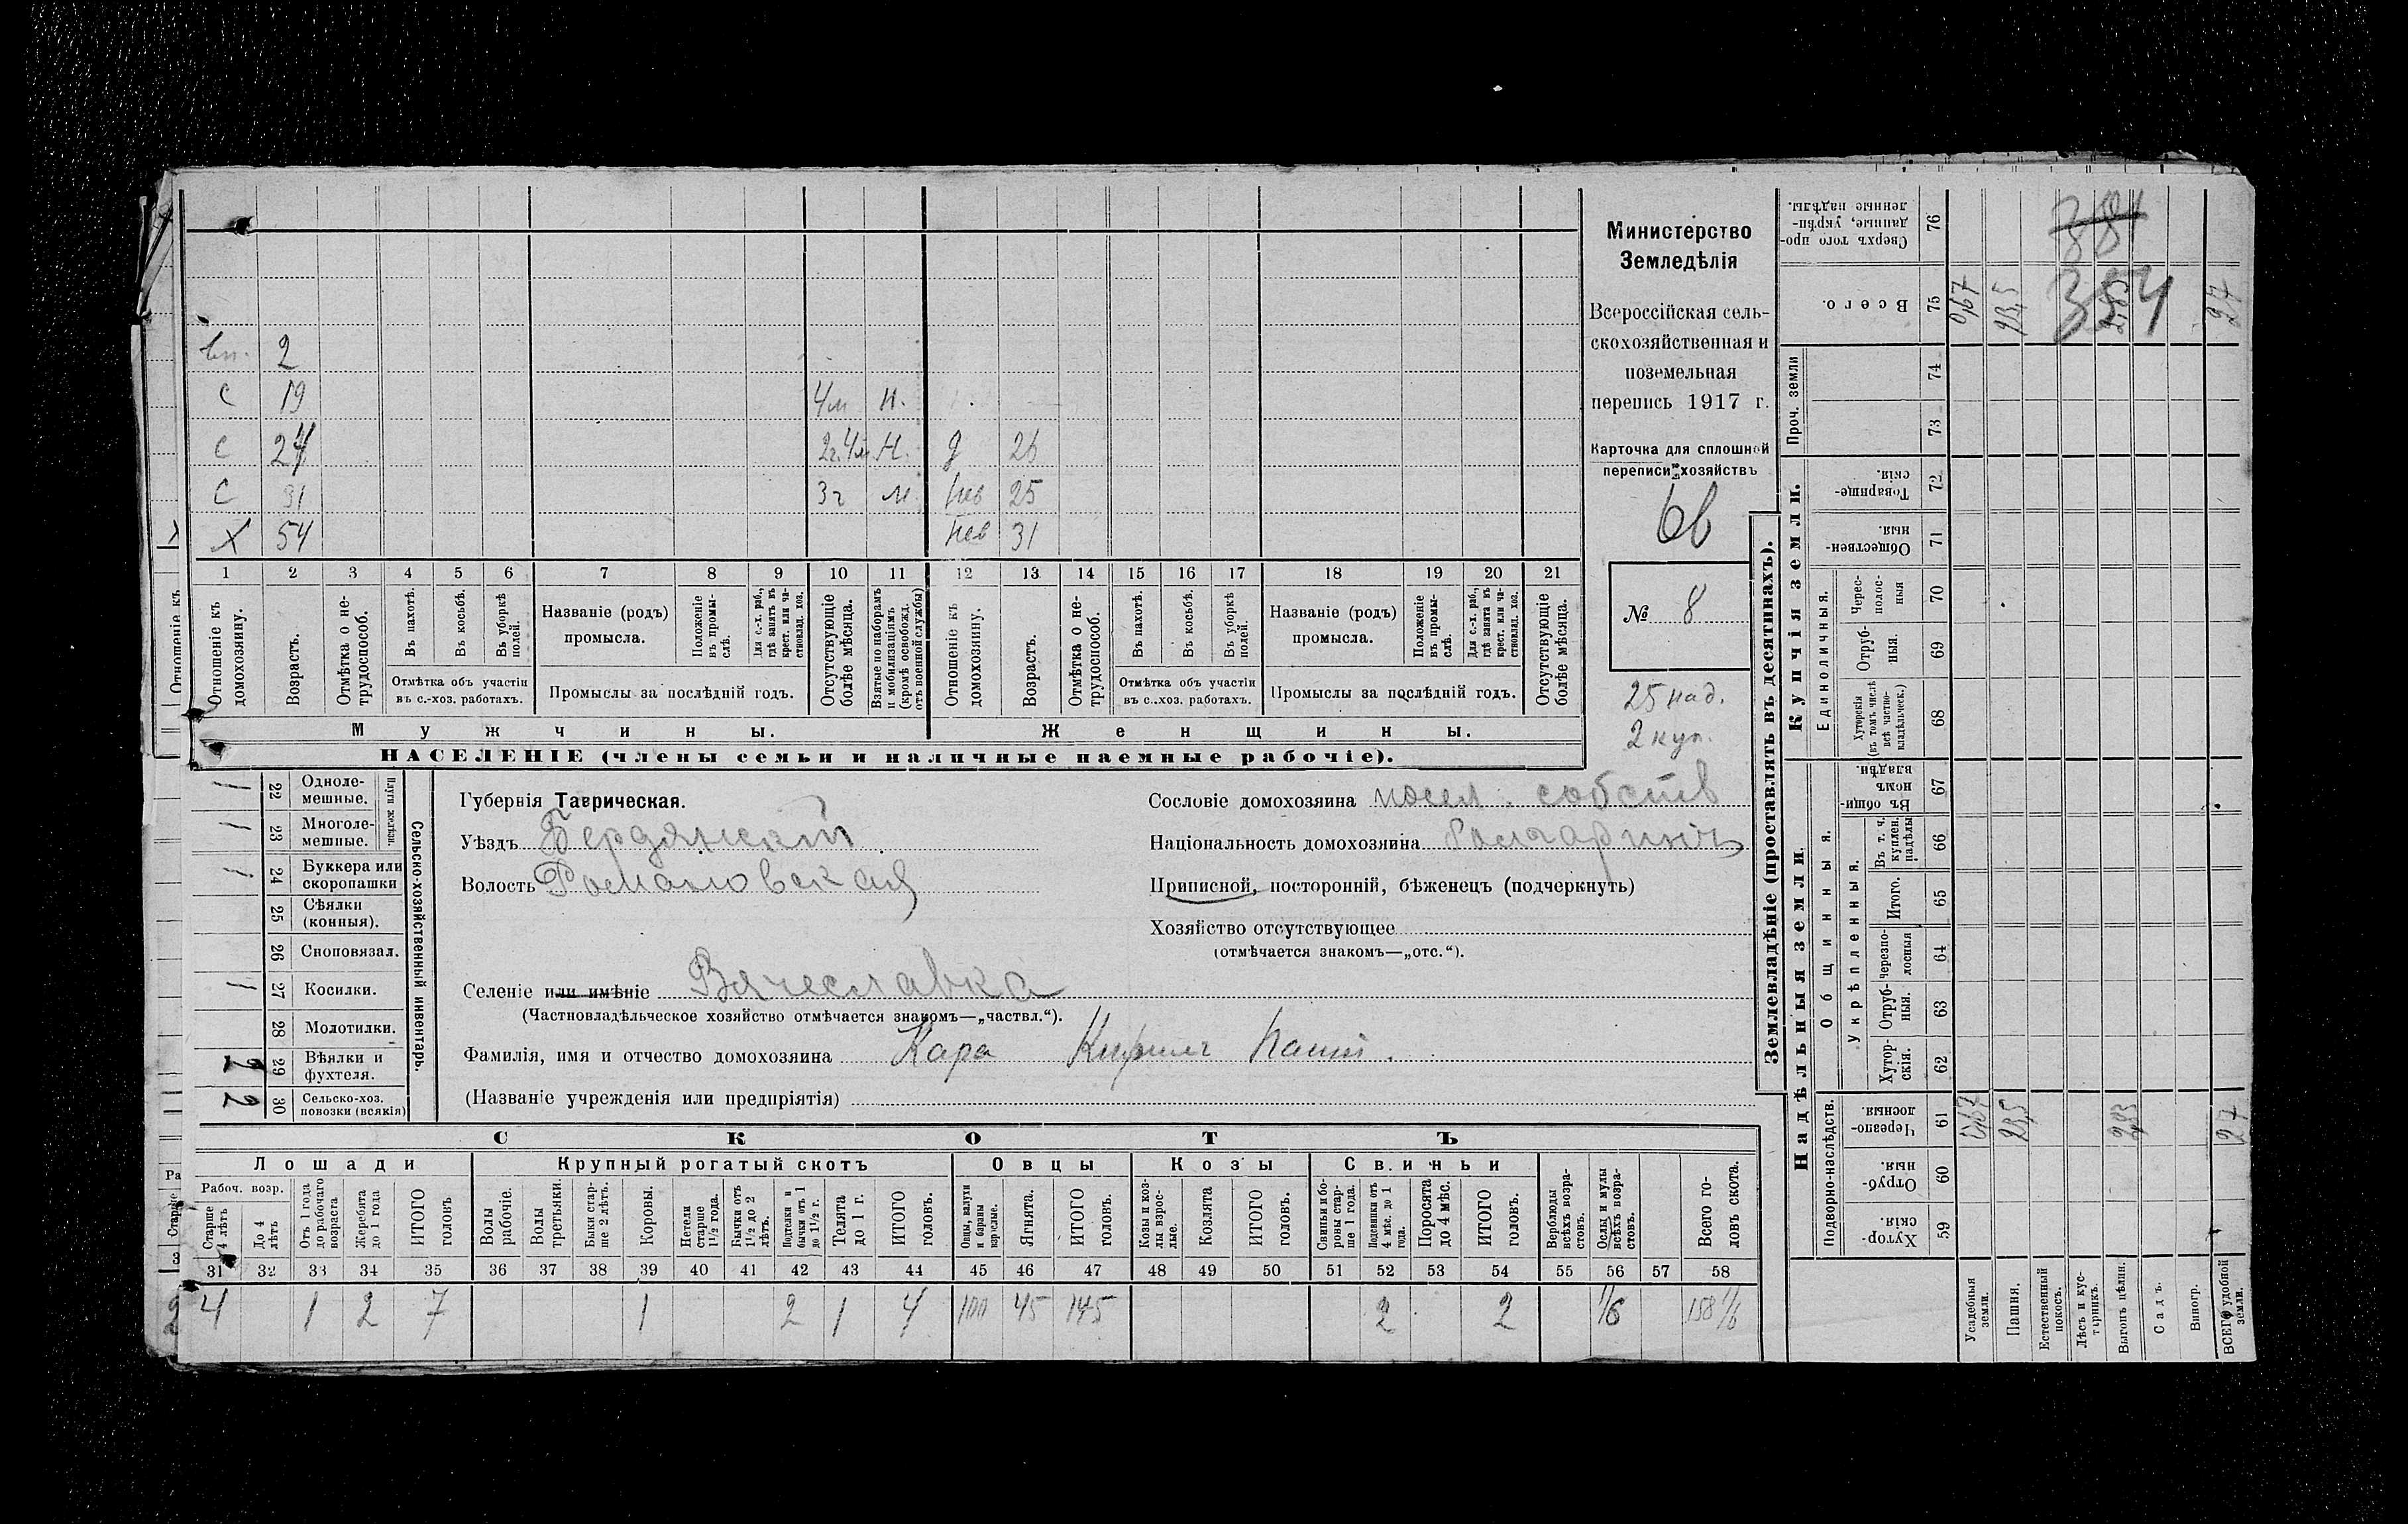 Министерство
Земледѣлія
Всероссійская сель-
скохозяйственная и
поземельная
перепись 1917 г.
Карточка для сплошной
переписи хозяйствъ
6в
№ 8
25 над.
2 куп.
вн. 2
С 19 4м Н.
С 24 2г.4м Н. д 26
С 31 3г М нев 25
Х 54 нев 31
1 2 3 4 5 6 7 8 9 10 11 12 13 14 15 16 17 18 19 20 21
Отношеніе къ домохозяину.
Возрастъ.
Отмѣтка о не-трудоспособ.
Въ пахотѣ.
Въ косьбѣ.
Въ уборкѣ полей.
Отмѣтка объ участіи въ с.-хоз. работахъ.
Названіе (родъ) промысла.
Положеніе въ промы-слѣ.
Для с.-х. раб., гдѣ занятъ въ крест. или ча-стновлад. хоз.
Промыслы за послѣдній годъ.
Отсутствующіе болѣе мѣсяца.
Взятые по наборамъ и мобилизаціямъ (кромѣ освобожд. отъ военной службы)
Отношеніе къ домохозяину.
Возрастъ.
Отмѣтка о не-трудоспособ.
Въ пахотѣ.
Въ косьбѣ.
Въ уборкѣ полей.
Отмѣтка объ участіи въ с..хоз. работахъ.
Названіе (родъ) промысла.
Положеніе въ промы-слѣ.
Для с.-х. раб., гдѣ занята въ крест. или ча-стновлад. хоз.
Промыслы за послѣдній годъ.
Отсутствующіе болѣе мѣсяца.
Мужчины.
Женщины.
НАСЕЛЕНІЕ (члены семьи и наличные наемные рабочіе).
Сельско-хозяйственный инвентарь.
Плуги желѣзн.
22 Одноле-мешные. 1
23 Многоле-мешные. 1
24 Буккера или скоропашки 1
25 Сѣялки (конныя).
26 Сноповязал.
27 Косилки. 1
28 Молотилки.
29 Вѣялки и фухтеля.
30 Сельско-хоз. повозки (всякія) 2
Губернія Таврическая.
Уѣздъ Бердянскій
Волость Романовская
Селеніе или имѣніе Вячеславка
(Частновладѣльческое хозяйство отмѣчается знакомъ—„частвл.“).
Фамилія, имя и отчество домохозяина Кара Кирилъ
(Названіе учрежденія или предпріятія)
Сословіе домохозяина посел. собств
Національность домохозяина болгаринъ
Приписной, посторонній, бѣженецъ (подчеркнуть)
Хозяйство отсутствующее
(отмѣчается знакомъ—„отс.“).
СКОТЪ
Лошади
Крупный рогатый скотъ
Овцы
Козы
Свиньи
Рабоч. возр.
Старше 4 лѣтъ
До 4 лѣтъ
Отъ 1 года до рабочаго возраста
Жеребята до 1 года
ИТОГО головъ
Волы рабочіе.
Волы третьяки.
Быки стар-ше 2 лѣтъ.
Коровы.
Нетели старше 1½ года.
Бычки отъ 1½ до 2 лѣтъ.
Подтелки и бычки отъ 1 до 1½ г.
Телята до 1 г.
ИТОГО головъ.
Овцы, валухи и бараны взрослые.
Ягнята.
ИТОГО головъ.
Козы и коз-лы взрос-лые.
Козлята
ИТОГО головъ.
Свиньи и бо-ровы стар-ше 1 года.
Подсвинки отъ 4 мѣс. до 1 года.
Поросята до 4 мѣс.
ИТОГО головъ.
Верблюды всѣхъ возра-стовъ.
Ослы и мулы всѣхъ возра-стовъ.
Всего го-ловъ скота.
31 32 33 34 35 36 37 38 39 40 41 42 43 44 45 46 47 48 49 50 51 52 53 54 55 56 57 58
4 1 2 7 1 2 1 4 100 45 145 2 2 1/6 158 1/6
Землевладѣніе (проставлять въ десятинахъ).
Надѣльныя земли.
Купчія земли.
Проч. земли
Общинныя.
Укрѣпленныя.
Единоличныя.
Подворно-наслѣдств.
Сверхъ того про-данные, укрѣп-ленные надѣлы. 76
Всего. 75 0,67 23,5 2,83 27
384
354
74
73
Товарище-скія. 72
Обществен-ныя. 71
Черес-полос-ныя 70
Отруб-ныя. 69
Хуторскія (въ томъ числѣ всѣ частно-владѣльческ.) 68
Въ общин-номъ владѣн. 67
Въ т. ч. куплен. надѣлы 66
Итого. 65
Черезпо-лосныя 64
Отруб-ныя. 63
Хутор-скія. 62
Черезпо-лосныя. 61 0,67 23,5 2,83 27
Отруб-ныя. 60
Хутор-скія. 59
Усадебныя земли.
Пашня.
Естественный покосъ.
Лѣсъ и кус-тарникъ.
Выгонъ цѣлин.
Садъ.
Виногр.
ВСЕГО удобной земли.